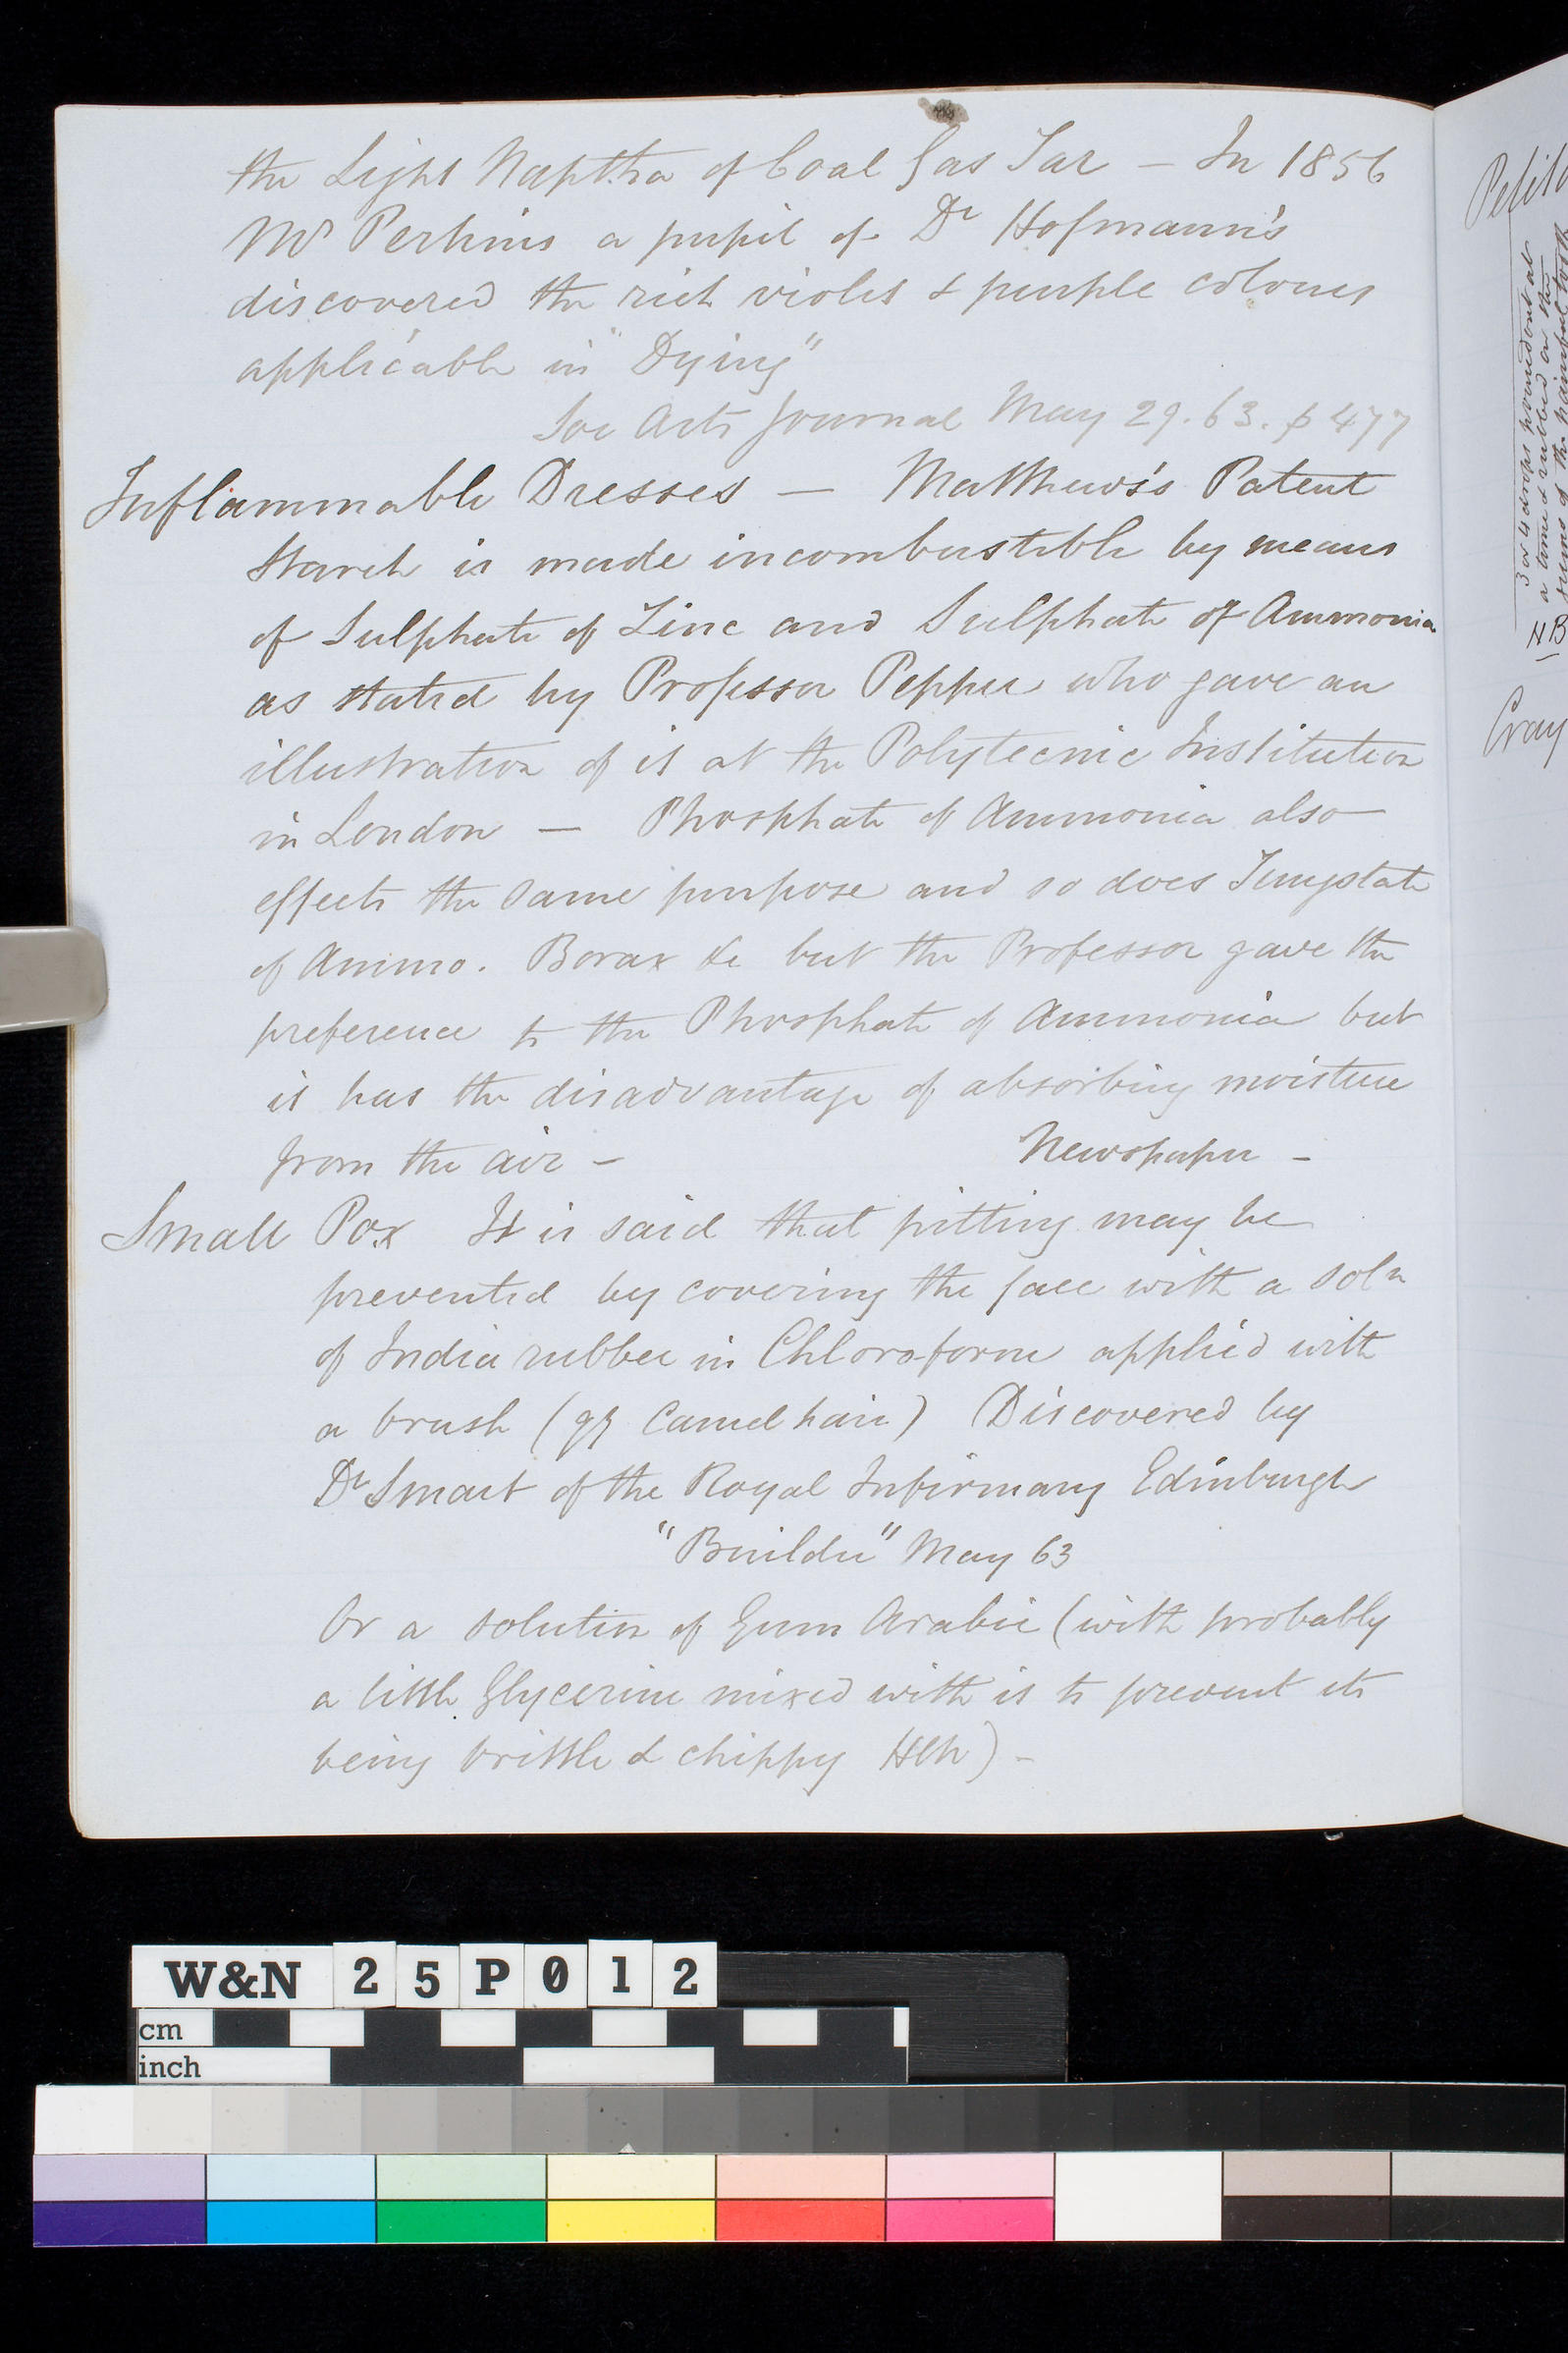 the Light Naptha of Coal Gas Tar – In 1856
Mr Perkins a pupil of Dr Hofmann's
discovered the rich violet & purple colours
applicable in "Dying"
Soc Arts Journal May 29. 63. p 477
Inflammable Dresses – Matthews's Patent
Starch is made incombustible by means
of Sulphate of Zinc and Sulphate of Ammonia
as stated by Professor Pepper who gave an
illustration of it at the Polytecnic Institution
in London – Phosphate of Ammonia also
effects the same purpose and so does Tungstate
of Ammo. Borax &c but the Professor gave the
preference to the Phosphate of Ammonia but
it has the disadvantage of absorbing moisture
from the air – Newspaper –
Small Pox It is said that pitting may be
prevented by covering the face with a soln
of India rubber in Chloroform applied with
a brush (qy Camel hair) Discovered by
Dr Smart of the Royal Infirmary Edinburgh
"Builder" May 63
Or a solution of Gum Arabic (with probably
a little Glycerine mixed with it to prevent its
being brittle & chippy HCN) –
3 or 4 drops poured out at
a time & rubbed on the
gums of the painful tooth
NB
W&N 25P012
cm
inch